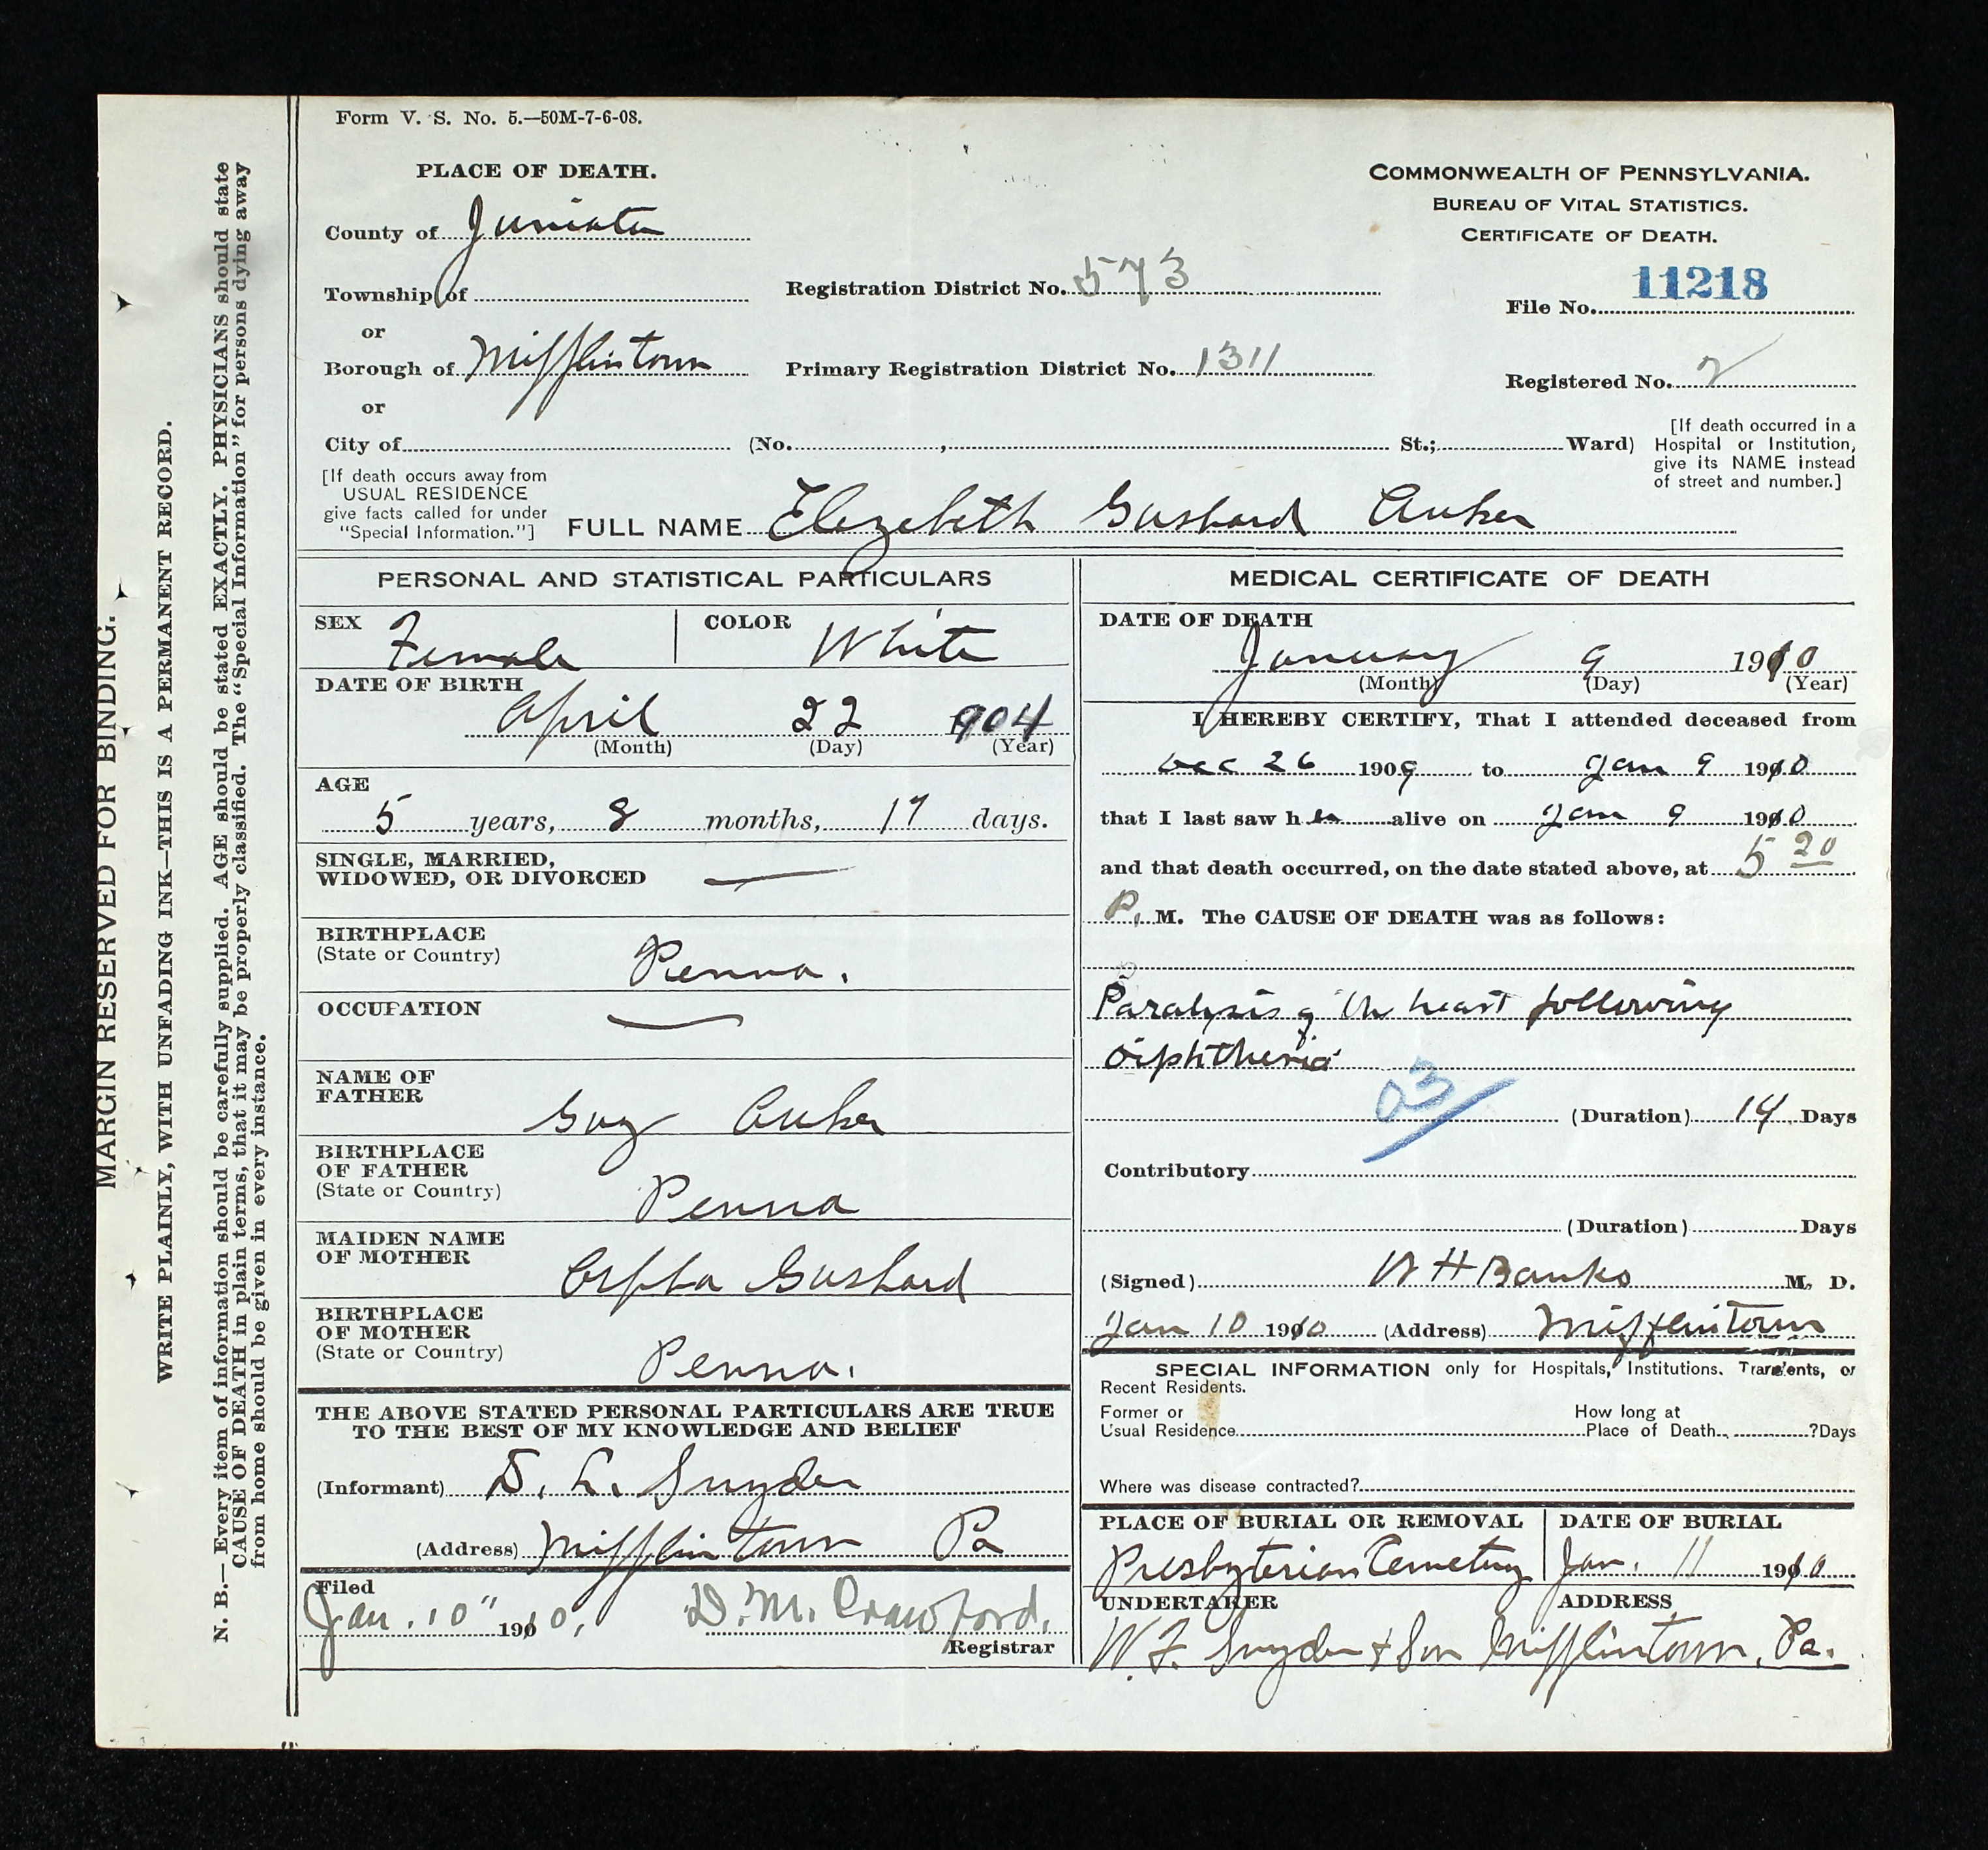 Form V. S. No. 5.—50M-7-6-08.
PLACE OF DEATH.
County of Juniata
Township of
or
Borough of Mifflintown
or
City of (No. , St.; Ward)
Registration District No. 573
Primary Registration District No. 1311
COMMONWEALTH OF PENNSYLVANIA.
BUREAU OF VITAL STATISTICS.
CERTIFICATE OF DEATH.
File No. 11218
Registered No. 2
[If death occurred in a
Hospital or Institution,
give its NAME instead
of street and number.]
[If death occurs away from
USUAL RESIDENCE
give facts called for under
"Special Information."]
FULL NAME Elezebeth Gushard Auker
PERSONAL AND STATISTICAL PARTICULARS
SEX Female
COLOR White
DATE OF BIRTH
April 22 1904
(Month) (Day) (Year)
AGE
5 years, 8 months, 17 days.
SINGLE, MARRIED,
WIDOWED, OR DIVORCED —
BIRTHPLACE
(State or Country) Penna.
OCCUPATION —
NAME OF
FATHER Guy Auker
BIRTHPLACE
OF FATHER
(State or Country) Penna
MAIDEN NAME
OF MOTHER Orpha Gushard
BIRTHPLACE
OF MOTHER
(State or Country) Penna.
THE ABOVE STATED PERSONAL PARTICULARS ARE TRUE
TO THE BEST OF MY KNOWLEDGE AND BELIEF
(Informant) D. L. Snyder
(Address) Mifflintown Pa
Filed
Jan. 10" 1910, D. M. Crawford.
Registrar
MEDICAL CERTIFICATE OF DEATH
DATE OF DEATH
January 9 1910
(Month) (Day) (Year)
I HEREBY CERTIFY, That I attended deceased from
Dec 26 1909 to Jan 9 1910
that I last saw her alive on Jan 9 1910
and that death occurred, on the date stated above, at 5 20
P. M. The CAUSE OF DEATH was as follows:
Paralysis of the heart following
Diphtheria
03
(Duration) 14 Days
Contributory
(Duration) Days
(Signed) W H Banks M. D.
Jan 10 1910 (Address) Mifflintown
SPECIAL INFORMATION only for Hospitals, Institutions, Transients, or
Recent Residents.
Former or
Usual Residence
How long at
Place of Death ?Days
Where was disease contracted?
PLACE OF BURIAL OR REMOVAL
Presbyterian Cemetery
DATE OF BURIAL
Jan. 11 1910
UNDERTAKER
W. F. Snyder & Son
ADDRESS
Mifflintown, Pa.
MARGIN RESERVED FOR BINDING.
WRITE PLAINLY, WITH UNFADING INK—THIS IS A PERMANENT RECORD.
N. B.—Every item of information should be carefully supplied. AGE should be stated EXACTLY. PHYSICIANS should state
CAUSE OF DEATH in plain terms, that it may be properly classified. The "Special Information" for persons dying away
from home should be given in every instance.